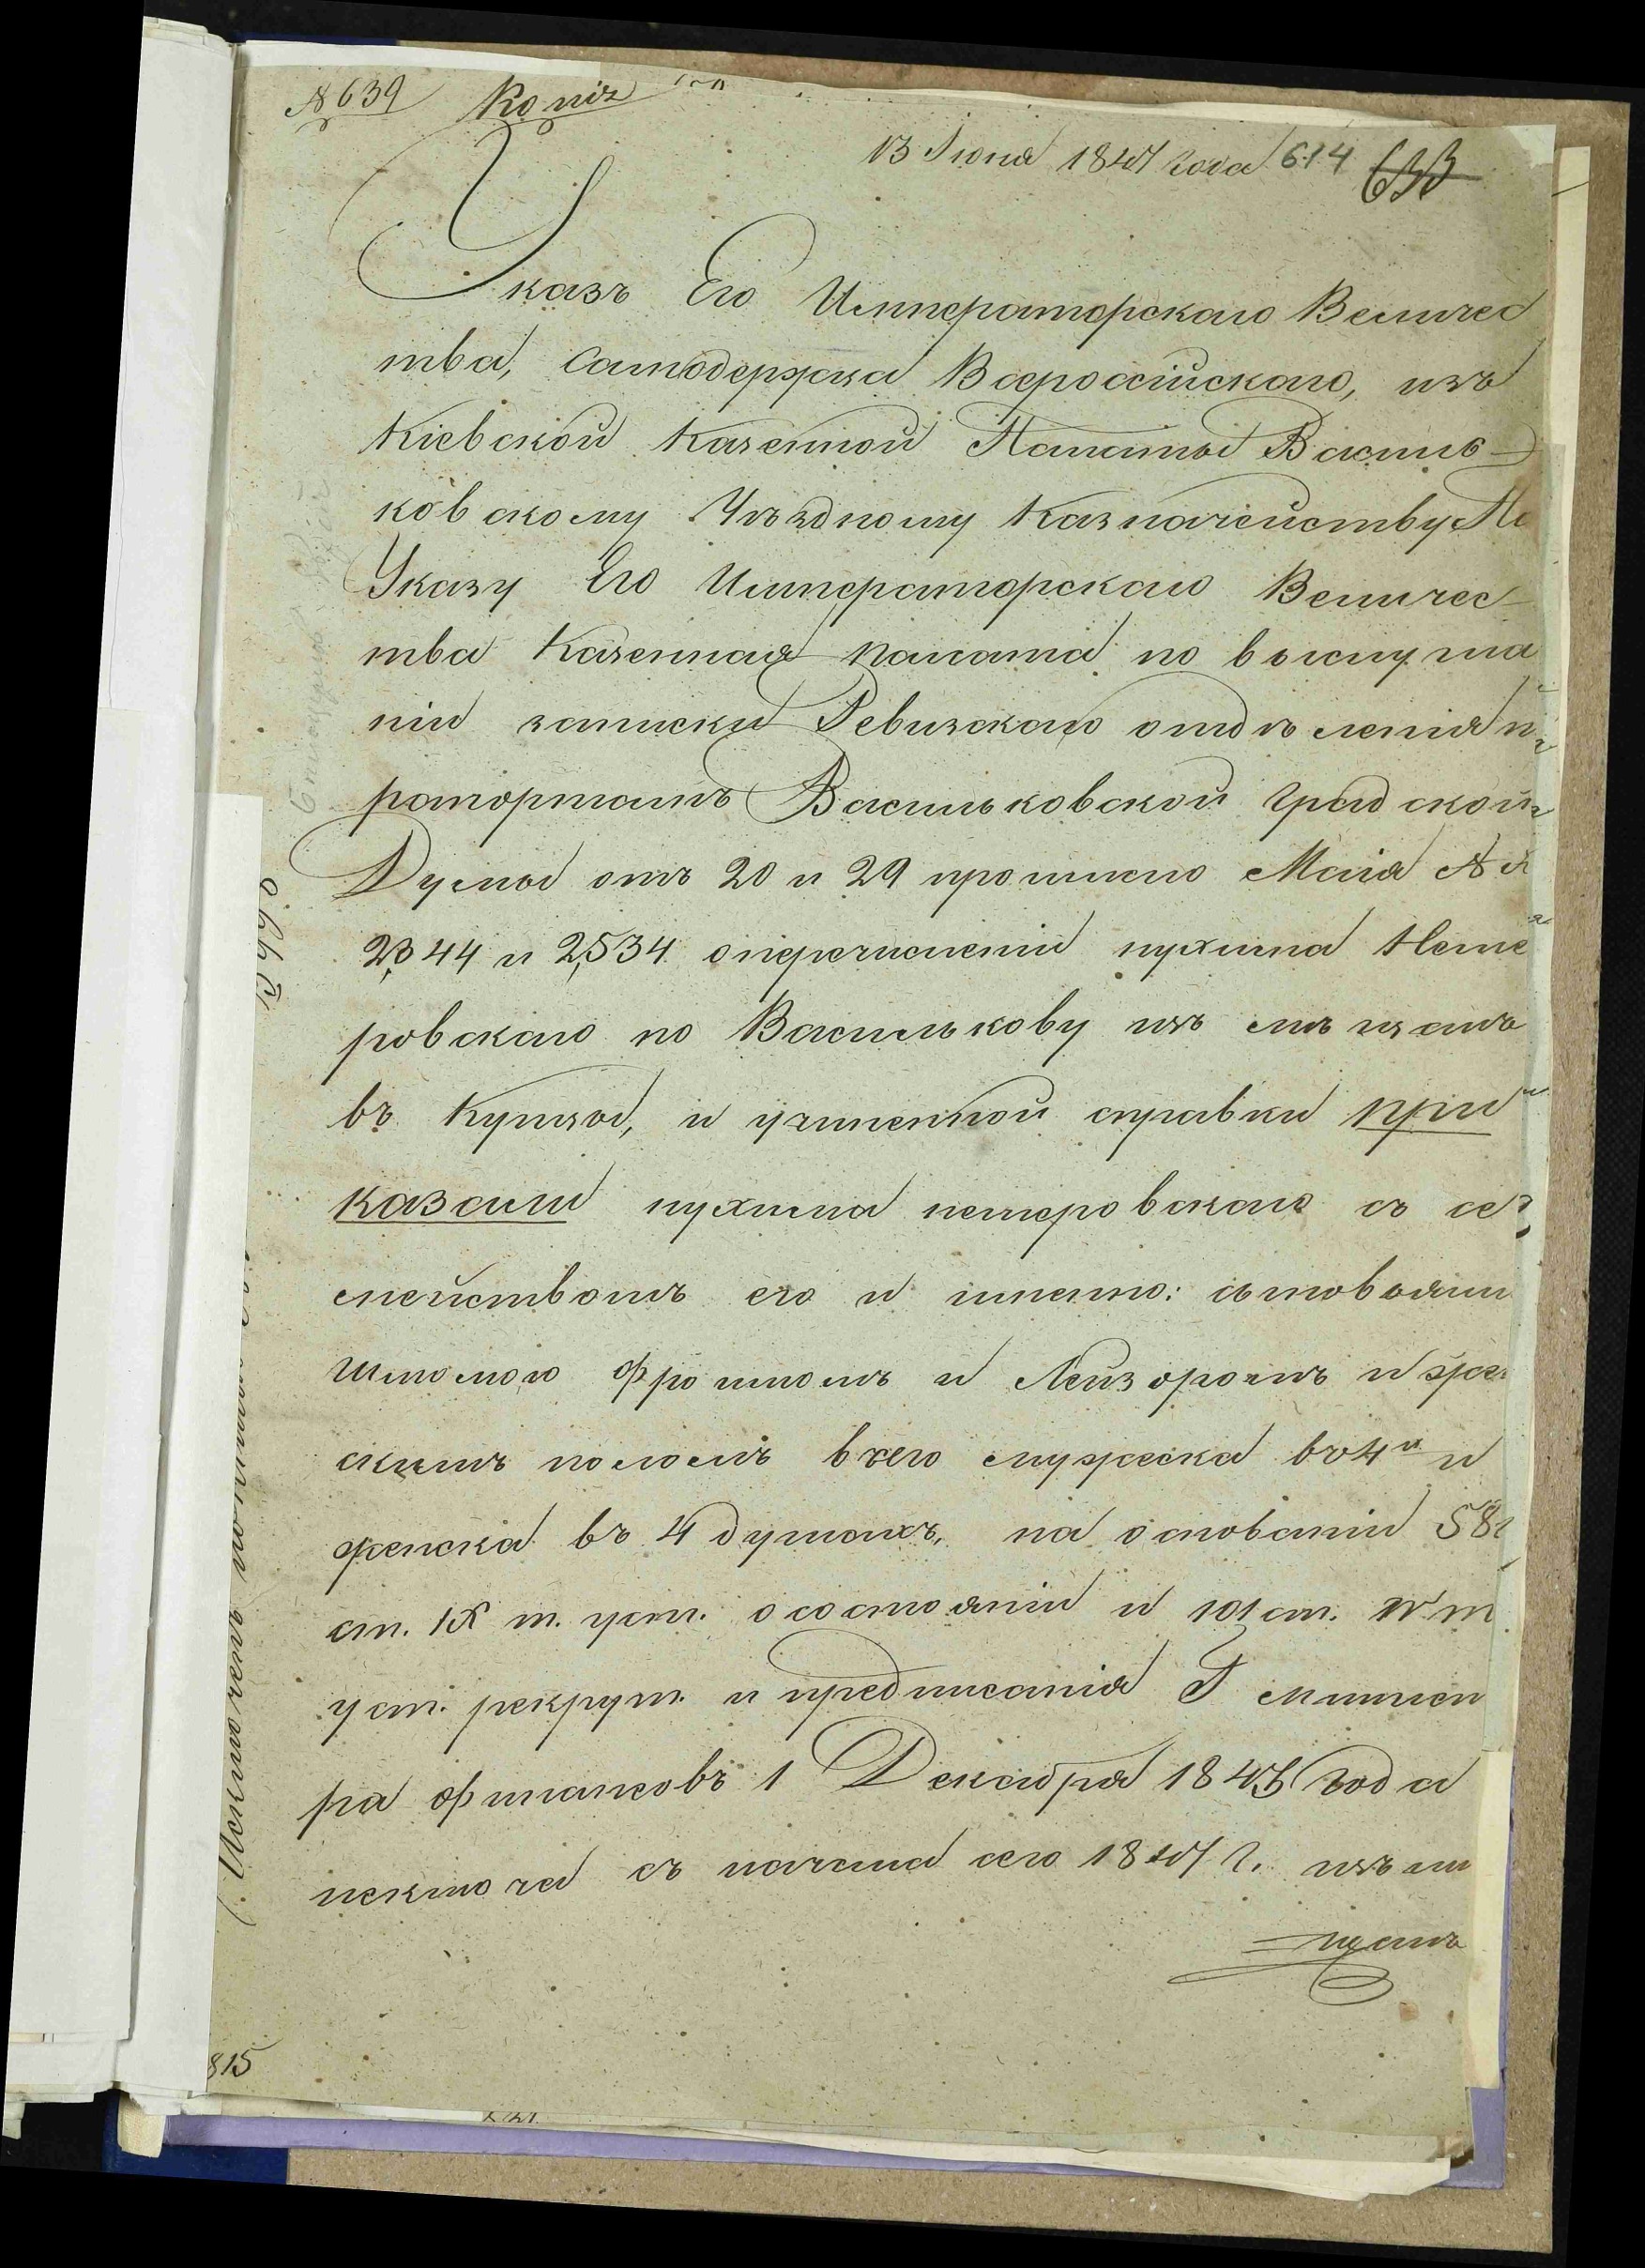 № 639 Копія
13 Іюня 1847 года 614 633
Указъ Его Императорскаго Величес
тва, Самодержца Всероссійскаго, изъ
Кіевской Казенной Палаты Василь-
ковскому Уѣздному Казначейству По
Указу Его Императорскаго Величес-
тва Казенная палата по выслуша
ніи записки Ревизскаго отдѣленія п
рапортамъ Васильковской Градской
Думы отъ 20 и 29 прошлаго Маія №
2344 и 2534 о перечисленіи нухима Неме
ровскаго по Василькову изъ мѣщанъ
въ Купцы, и учиненной справки при
казали нухима немеровскаго съ се
мействомъ его и именно: сыновьями
Шлиомою Фроимомъ и Лейзоромъ и жен
скимъ поломъ всего мужеска въ 4 и
женска въ 4 душахъ, на основаніи 58
ст. IX т. уст. о состояніи и 101 ст. IV т
уст. рекрут. и предписанія Г министр
ра финансовъ 1 Декабря 1843 года
исключа съ начала сего 1847 г. изъ мѣ
щанъ
815